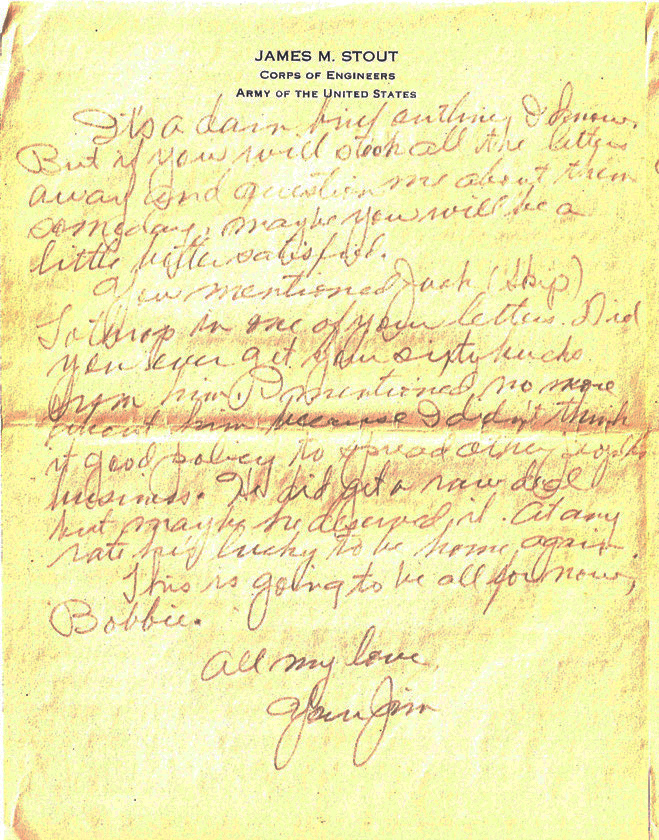 JAMES M. STOUT
CORPS OF ENGINEERS
ARMY OF THE UNITED STATES
It's a darn brief outline, I know.
But if you will stock all the letters
away and question me about them
someday, maybe you will be a
little better satisfied.
You mentioned Jack (Skip)
Lothrop in one of your letters. Did
you ever get your sixty bucks
from him? I mentioned no more
about him because I didn't think
it good policy to spread other
business. He did get a raw deal
but maybe he deserved it. At any
rate he's lucky to be home again.
This is going to be all for now,
Bobbie.
All my love,
Your Jim